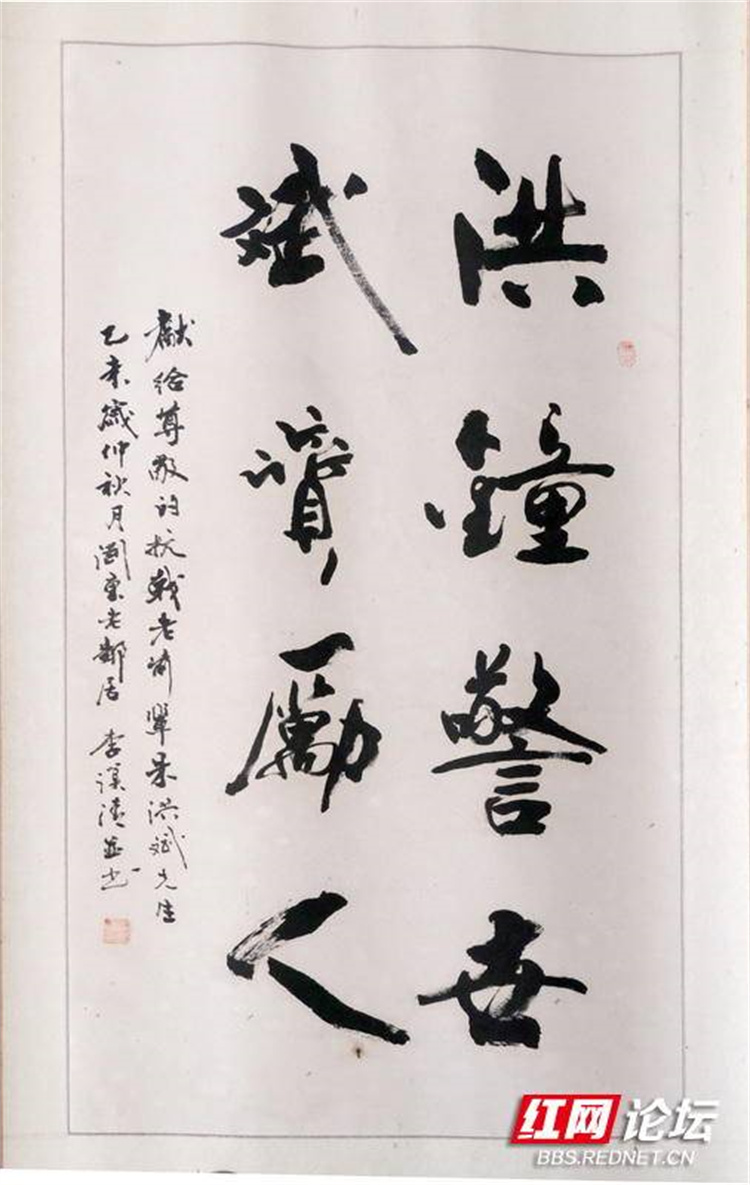 洪鐘警世
斌勵人
獻给尊敬的抗戰老前輩洪斌先生
乙未歲仲秋月東老鄰居 李並书
红网论坛
BBS.REDNET.CN